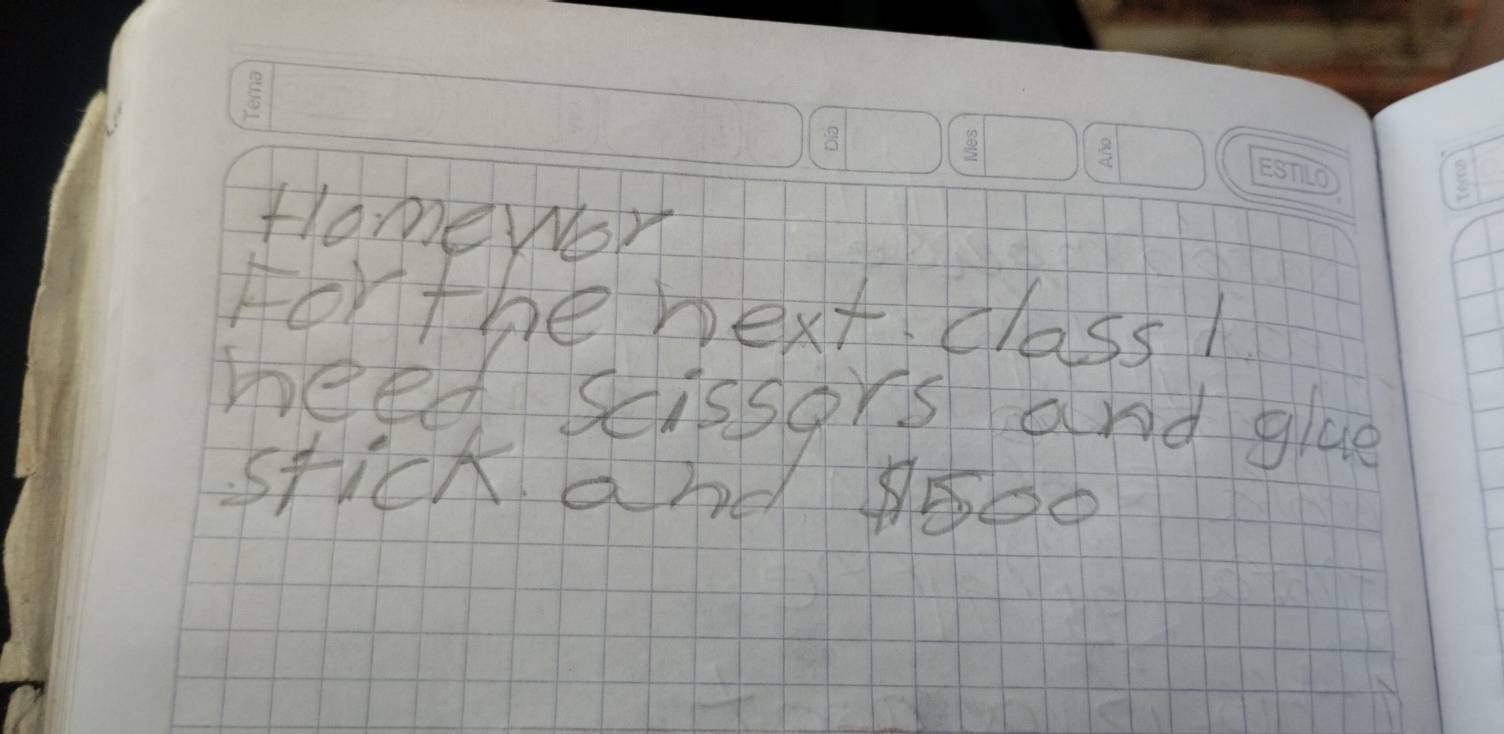 Tema Día Mes Año ESTILO
Homewor
For the next class I
need scissors and glue
stick and $500
Tema